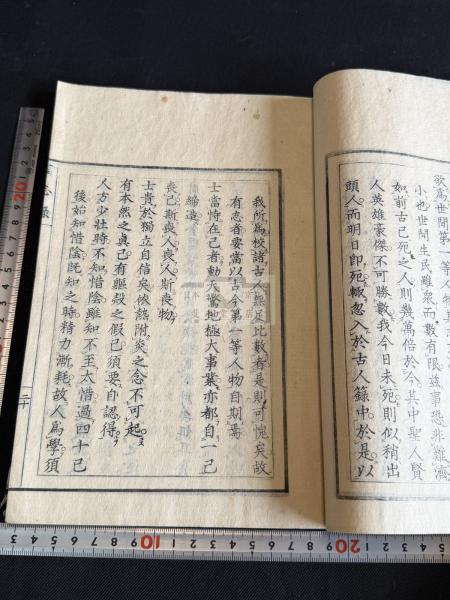 欲爲世間第一等人物其
小也世間生民雖衆而數有限茲事恐非難濟
如前古已死之人則幾萬倍於今其中聖人賢
人英雄豪傑不可勝數我今日未死則似稍出
頭人而明日即死輙忽入於古人籙中於是以
我所爲校諸古人無足比數者是則可愧矣故
有志者要當以古今第一等人物自期焉
士當恃在己者動天驚地極大事業亦都自一己
締造
喪己斯喪人喪人斯喪物
士貴於獨立自信矣依熱附炎之念不可起
有本然之真己有軀殼之假己須要自認得
人方少壯時不知惜陰雖知不至太惜過四十已
後始知惜陰既知之時精力漸耗故人爲學須
志錄
二十